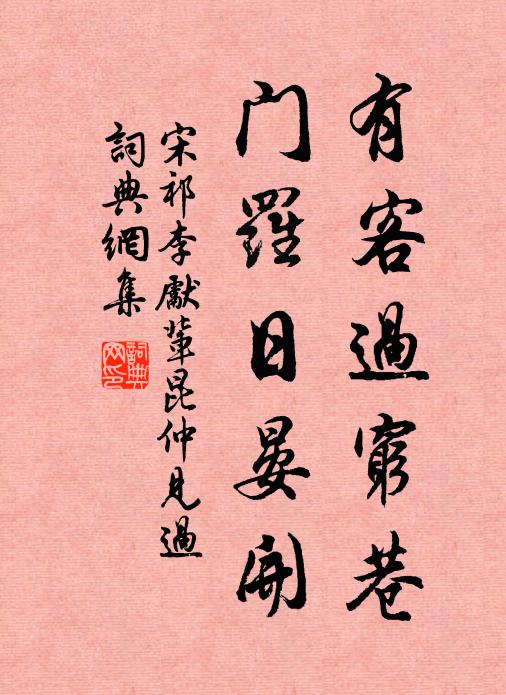 有客過窮巷
门羅日晏開
宋祁李獻輩昆仲見過
詞典網集
詞典网印